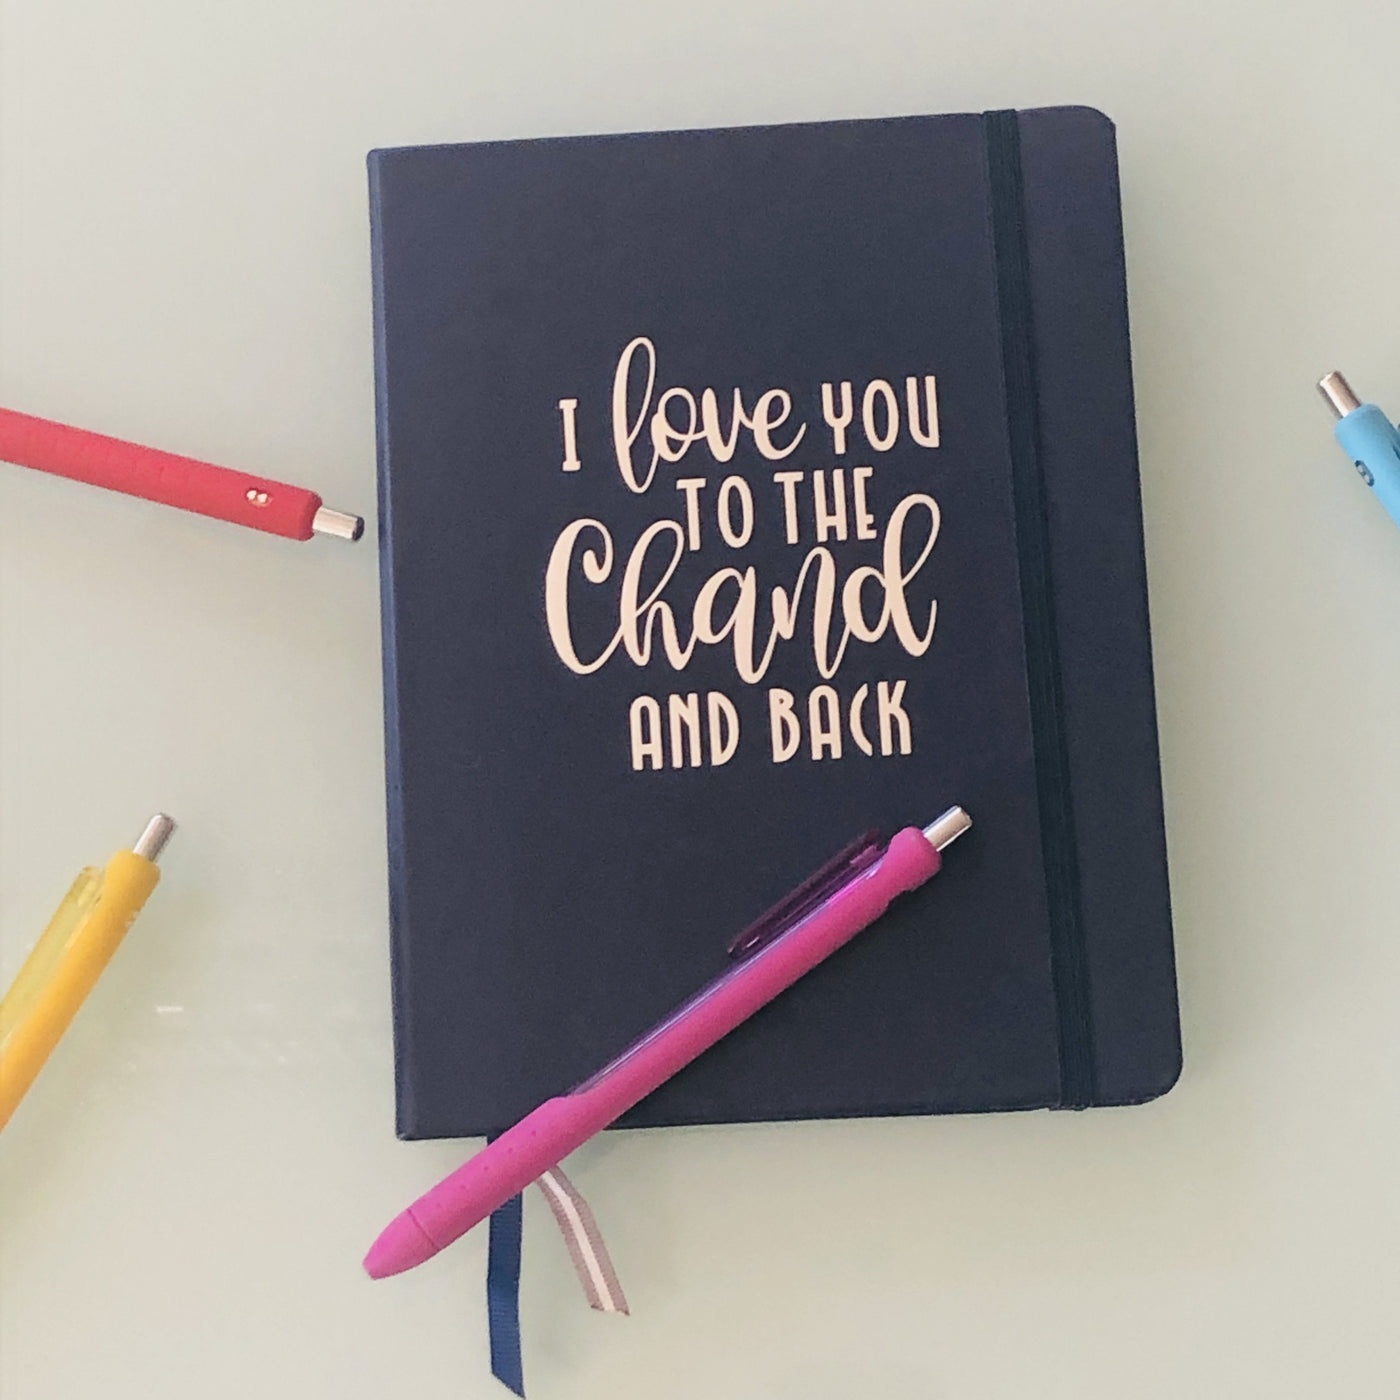 I love YOU
TO THE
Chand
AND BACK